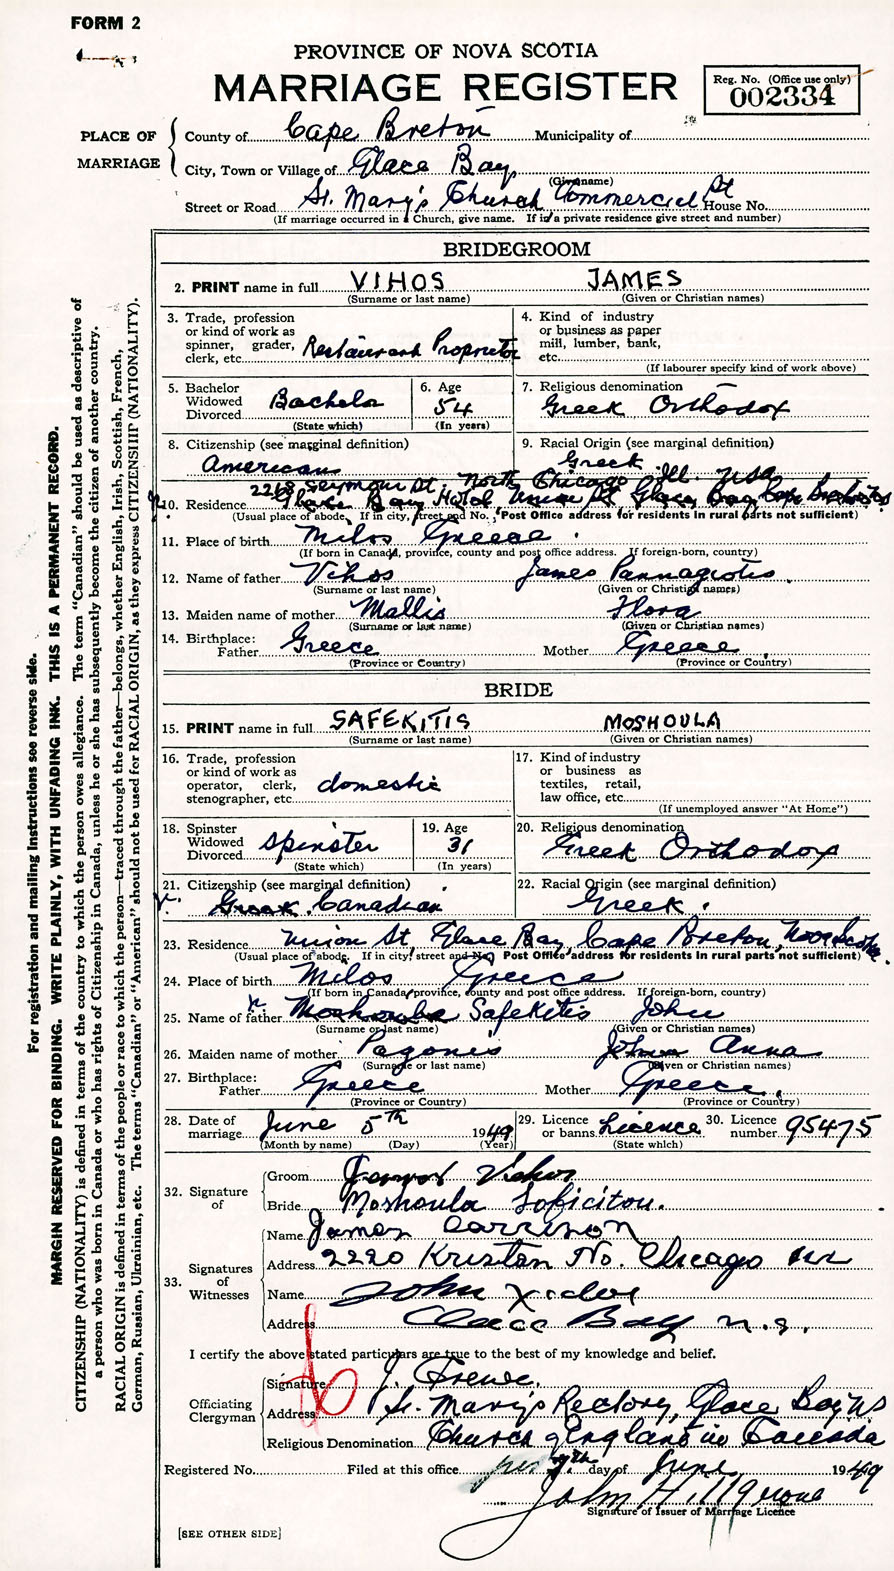 FORM 2
PROVINCE OF NOVA SCOTIA
MARRIAGE REGISTER
Reg. No. (Office use only)
002334
PLACE OF MARRIAGE
County of Cape Breton Municipality of
City, Town or Village of Glace Bay
(Give name)
Street or Road St. Mary's Church Commercial St House No.
(If marriage occurred in a Church, give name. If in a private residence give street and number)
BRIDEGROOM
2. PRINT name in full VIHOS JAMES
(Surname or last name) (Given or Christian names)
3. Trade, profession or kind of work as spinner, grader, clerk, etc. Restaurant Proprietor
4. Kind of industry or business as paper mill, lumber, bank, etc.
(If labourer specify kind of work above)
5. Bachelor Widowed Divorced Bachelor
(State which)
6. Age 54
(In years)
7. Religious denomination
Greek Orthodox
8. Citizenship (see marginal definition)
American
9. Racial Origin (see marginal definition)
Greek
2268 Seymour St. North Chicago Ill. USA
10. Residence Glace Bay Hotel Union St Glace Bay Cape Breton NS
(Usual place of abode. If in city, street and No. Post Office address for residents in rural parts not sufficient)
11. Place of birth Milos Greece
(If born in Canada, province, county and post office address. If foreign-born, country)
12. Name of father Vihos James Pannagiotis
(Surname or last name) (Given or Christian names)
13. Maiden name of mother Mallis Flora
(Surname or last name) (Given or Christian names)
14. Birthplace: Father Greece Mother Greece
(Province or Country) (Province or Country)
BRIDE
15. PRINT name in full SAFEKITIS MOSHOULA
(Surname or last name) (Given or Christian names)
16. Trade, profession or kind of work as operator, clerk, stenographer, etc. domestic
17. Kind of industry or business as textiles, retail, law office, etc.
(If unemployed answer "At Home")
18. Spinster Widowed Divorced Spinster
(State which)
19. Age 31
(In years)
20. Religious denomination
Greek Orthodox
21. Citizenship (see marginal definition)
Greek Canadian
22. Racial Origin (see marginal definition)
Greek.
23. Residence Union St, Glace Bay, Cape Breton, Nova Scotia.
(Usual place of abode. If in city street and No. Post Office address for residents in rural parts not sufficient)
24. Place of birth Milos Greece
(If born in Canada province, county and post office address. If foreign-born, country)
25. Name of father Moshoula Safekitis John
(Surname or last name) (Given or Christian names)
26. Maiden name of mother Pagonis John Anna
(Surname or last name) (Given or Christian names)
27. Birthplace: Father Greece Mother Greece
(Province or Country) (Province or Country)
28. Date of marriage June 5th 1949
(Month by name) (Day) (Year)
29. Licence or banns Licence
(State which)
30. Licence number 95475
32. Signature of
Groom James Vihos
Bride Moshoula Soficitou.
33. Signatures of Witnesses
Name James Carrison
Address 2220 Kristen No. Chicago Ill
Name John
Address Glace Bay N.S.
I certify the above stated particulars are true to the best of my knowledge and belief.
Officiating Clergyman
Signature J.
Address St. Mary's Rectory, Glace Bay NS
Religious Denomination Church of England in Canada
Registered No. Filed at this office 7th day of June 1949
John H.
Signature of Issuer of Marriage Licence
[SEE OTHER SIDE]
For registration and mailing instructions see reverse side.
MARGIN RESERVED FOR BINDING. WRITE PLAINLY, WITH UNFADING INK. THIS IS A PERMANENT RECORD.
CITIZENSHIP (NATIONALITY) is defined in terms of the country to which the person owes allegiance. The term "Canadian" should be used as descriptive of
a person who was born in Canada or who has rights of Citizenship in Canada, unless he or she has subsequently become the citizen of another country.
RACIAL ORIGIN is defined in terms of the people or race to which the person—traced through the father—belongs, whether English, Irish, Scottish, French,
German, Russian, Ukrainian, etc. The terms "Canadian" or "American" should not be used for RACIAL ORIGIN, as they express CITIZENSHIP (NATIONALITY).